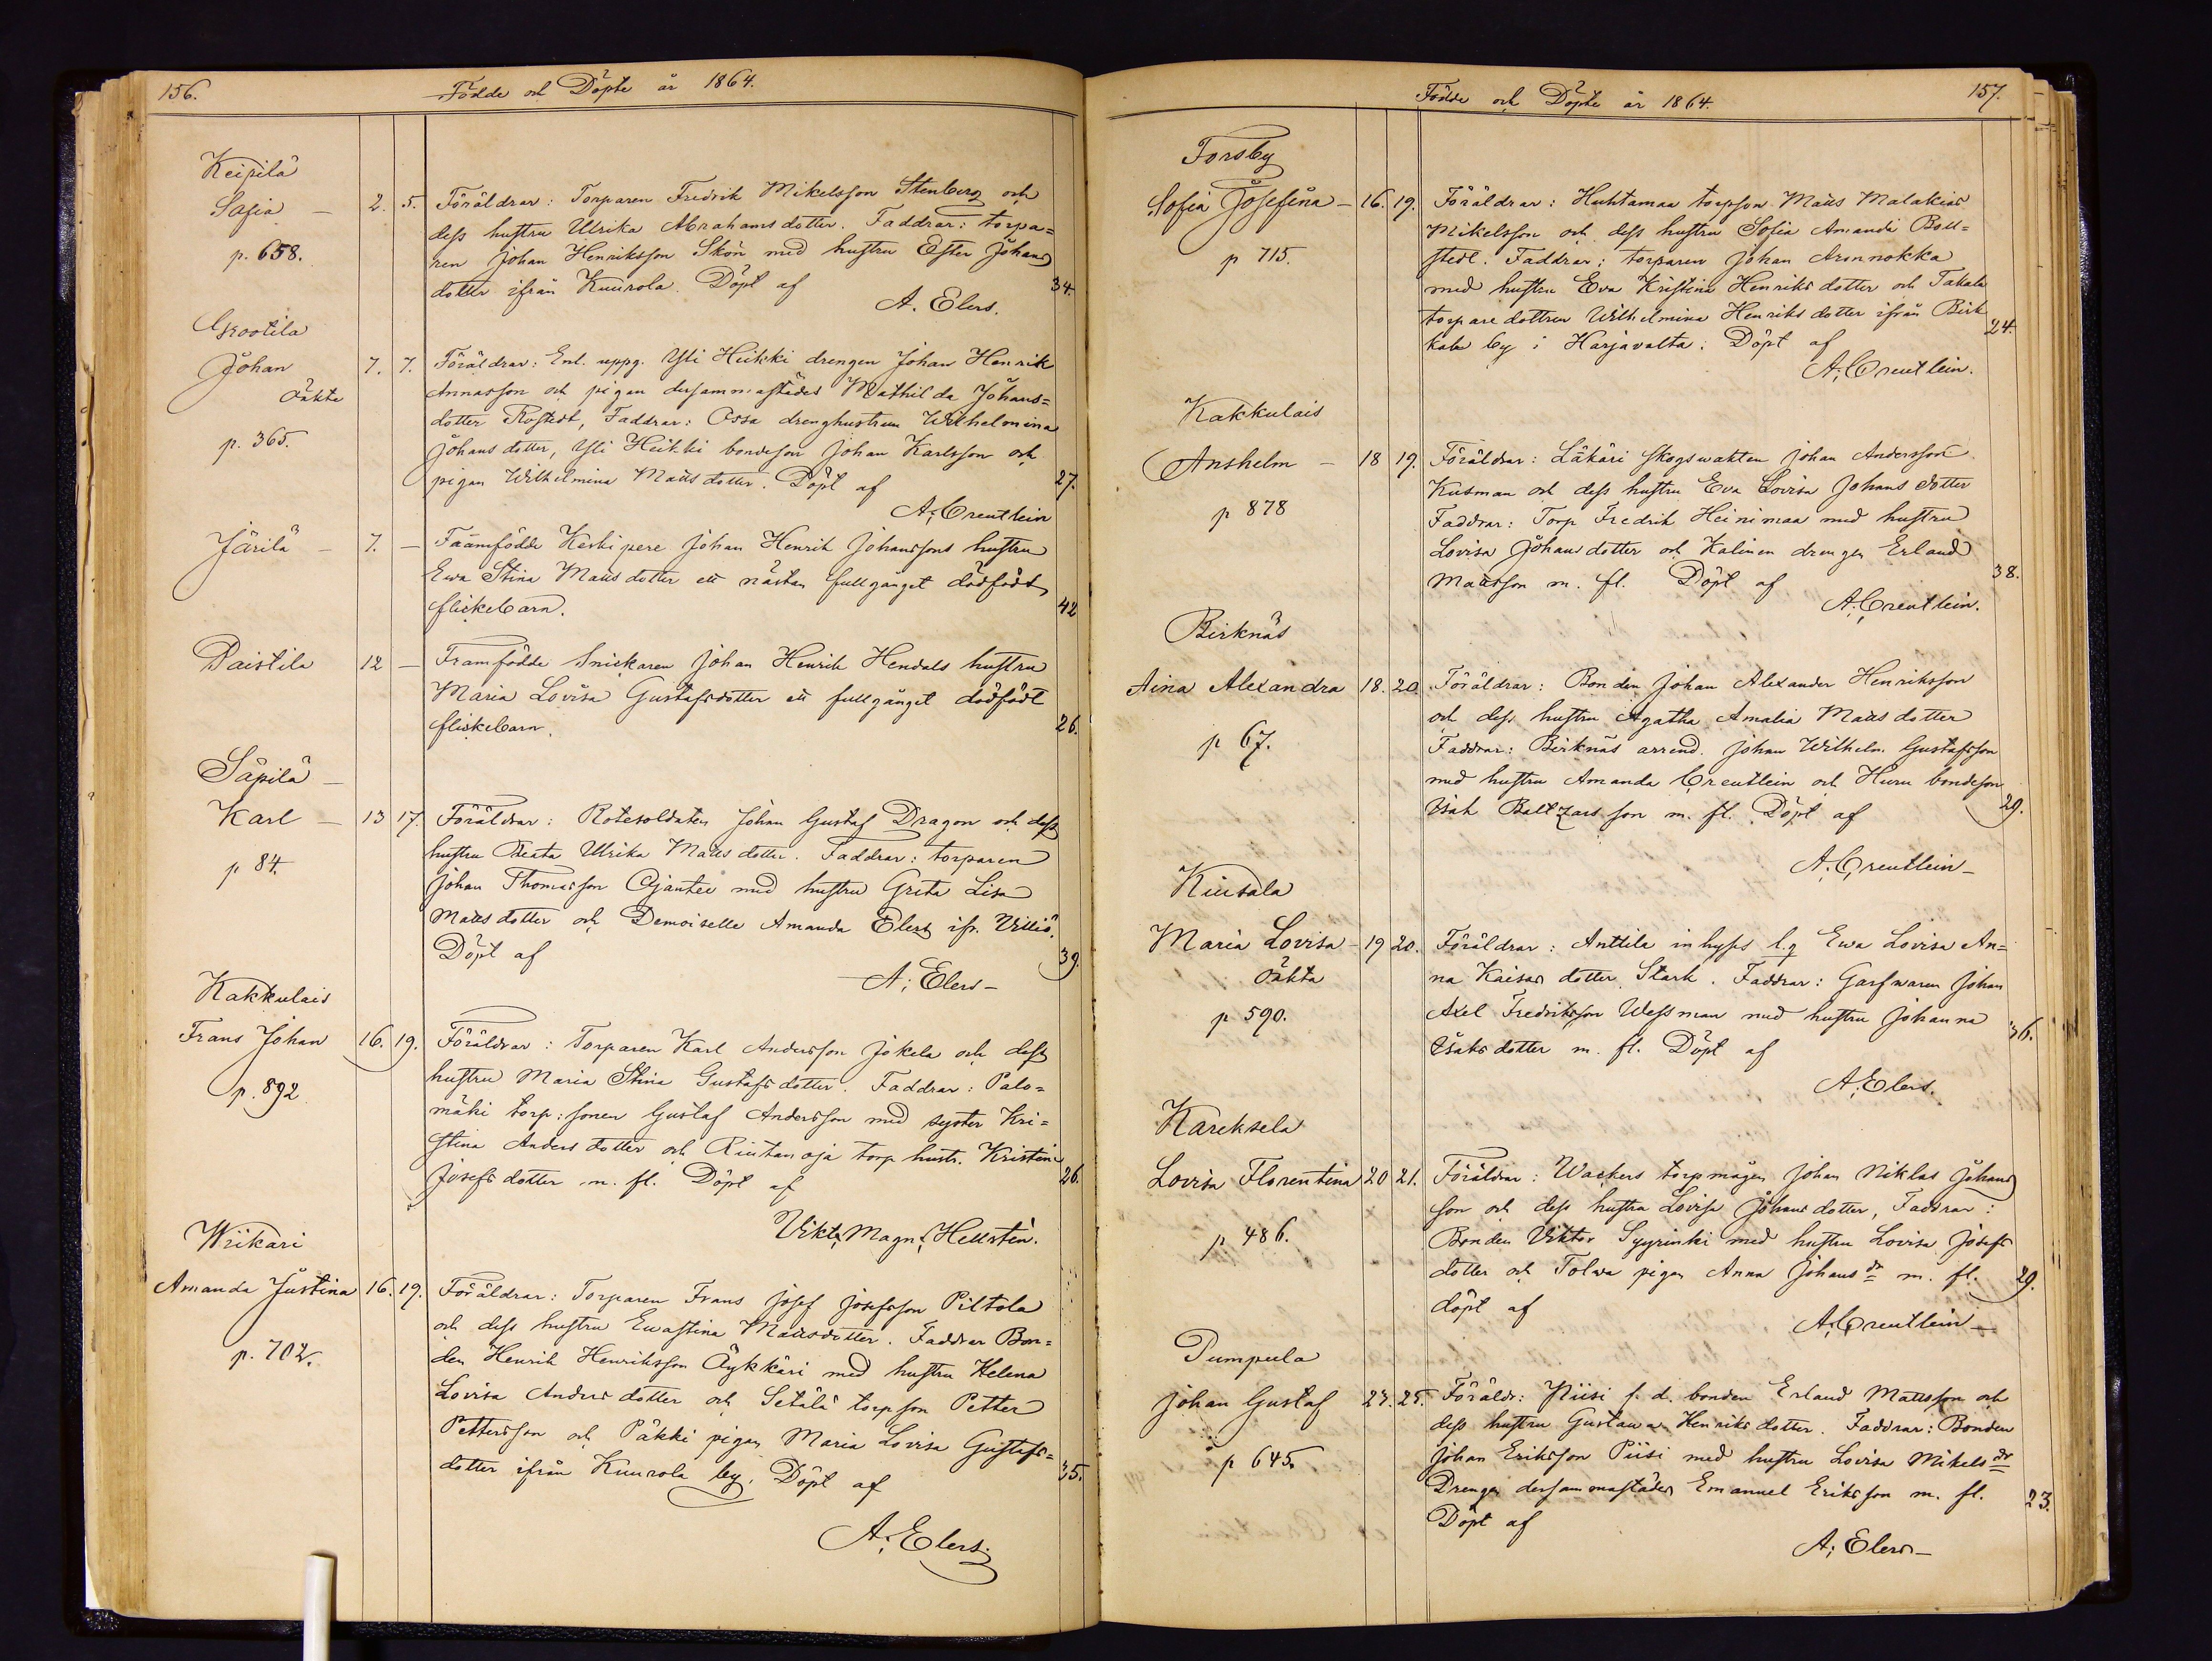 156.
Födde och Döpte år 1864.
Keipilä
Safia — 2. 5. Föräldrar: Torparen Fredrik Mikelsson Stenberg och
dess hustru Ulrika Abrahamsdotter. Faddrar: torpa=
p. 658. ren Johan Henriksson Skön med hustru Ester Johans
dotter ifrån Kuurola. Döpt af 34.
A. Elers.
Krootila
Johan 7. 7. Föräldrar: Enl. uppg. Yli Heikki drengen Johan Henrik
oäkta Annasson och pigan dersammastädes Mathilda Johans=
dotter Rostedt, Faddrar: Ossa drenghustrun Wilhelmina
p. 365. Johansdotter, Yli Heikki bondeson Johan Karlsson och
pigan Wilhelmina Matts dotter. Döpt af 27.
A. Creutlein
Järilä — 7. — Framfödde Keskipere Johan Henrik Johanssons hustru
Ewa Stina Mattsdotter ett nästan fullgånget dödfödt
flickebarn. 42
Paistila 12 — Framfödde Snickaren Johan Henrik Hendals hustru
Maria Lovisa Gustafsdotter ett fullgånget dödfödt
flickebarn. 26.
Säpilä —
Karl — 13 17. Föräldrar: Rotesoldaten Johan Gustaf Dragon och dess
hustru Beata Ulrika Matts dotter. Faddrar: torparen
p 84. Johan Thomasson Ojantee med hustru Greta Lisa
Matts dotter och Demoiselle Amanda Elers ifr. Villiö.
Döpt af 39.
A; Elers —
Kakkulais
Frans Johan 16. 19. Föräldrar: Torparen Karl Andersson Jokela och dess
hustru Maria Stina Gustafs dotter. Faddrar: Palo=
p. 892 mäki torp: sonen Gustaf Andersson med syster Kri=
stina Anders dotter och Riutanoja torp hustr. Kristina
Josefs dotter m. fl. Döpt af 26.
Vikt: Magn: Hellstén.
Wiikari
Amanda Justina 16. 19. Föräldrar: Torparen Frans Josef Josefsson Piltola
och dess hustru Ewastina Mattsdotter. Faddrar Bon=
p. 702. den Henrik Henriksson Äykkäri med hustru Helena
Lovisa Anders dotter och Setälä torpson Petter
Pettersson och Päkki pigan Maria Lovisa Gustafs=
dotter ifrån Kuurola by. Döpt af 35.
A. Elers.
Födde och Döpte år 1864.
157.
Forsby
Sofia Josefina — 16. 19. Föräldrar: Huhtamaa torpson Matts Malakias
Mikelsson och dess hustru Sofia Amanda Boll=
p 715. stedt. Faddrar: torparen Johan Aronnokka
med hustru Eva Kristina Henriks dotter och Takala
torpare dottren Wilhelmina Henriks dotter ifrån Pirk
kala by i Harjavalta. Döpt af 24.
A. Creutlein.
Kakkulais
Anshelm — 18 19. Föräldrar: Läkäri skogswakten Johan Andersson
Kusman och dess hustru Eva Lovisa Johans dotter
p 878 Faddrar: Torp Fredrik Heinimaa med hustru
Lovisa Johansdotter och Kalinen drengen Erland
Mattsson m. fl. Döpt af 38.
A. Creutlein.
Birknäs
Aina Alexandra 18. 20. Föräldrar: Bonden Johan Alexander Henriksson
och dess hustru Agatha Amalia Matts dotter
p 67. Faddrar: Birknäs arrend. Johan Wilhelm Gustafsson
med hustru Amanda Creutlein och Huru bondeson
Isak Baltzarsson m. fl. Döpt af 29.
A. Creutlein —
Kiusala
Maria Lovisa — 19 20. Föräldrar: Anttila inhyses l.q Ewa Lovisa An=
oäkta na Kaisas dotter Stark. Faddrar: Garfwaren Johan
p 590. Axel Fredriksson Wessman med hustru Johanna
Isaks dotter m. fl. Döpt af 36.
A. Elers.
Kareksela
Lovisa Florentina 20 21. Föräldrar: Wackers torpmågen Johan Niklas Johans
son och dess hustru Lovisa Johansdotter, Faddrar:
p 486. Bonden Viktor Syyrinki med hustru Lovisa Josefs
dotter och Tolwa pigan Anna Johans dr m. fl. 29.
döpt af
A. Creutlein —
Pumpula
Johan Gustaf 23. 25. Föräldr: Piisi f. d. bonden Erland Mattsson och
dess hustru Gustawa Henriks dotter. Faddrar: Bonden
p 645. Johan Eriksson Piisi med hustru Lovisa Mikels dr
Drengen dersammastädes Emanuel Eriksson m. fl. 23.
Döpt af
A; Elers —